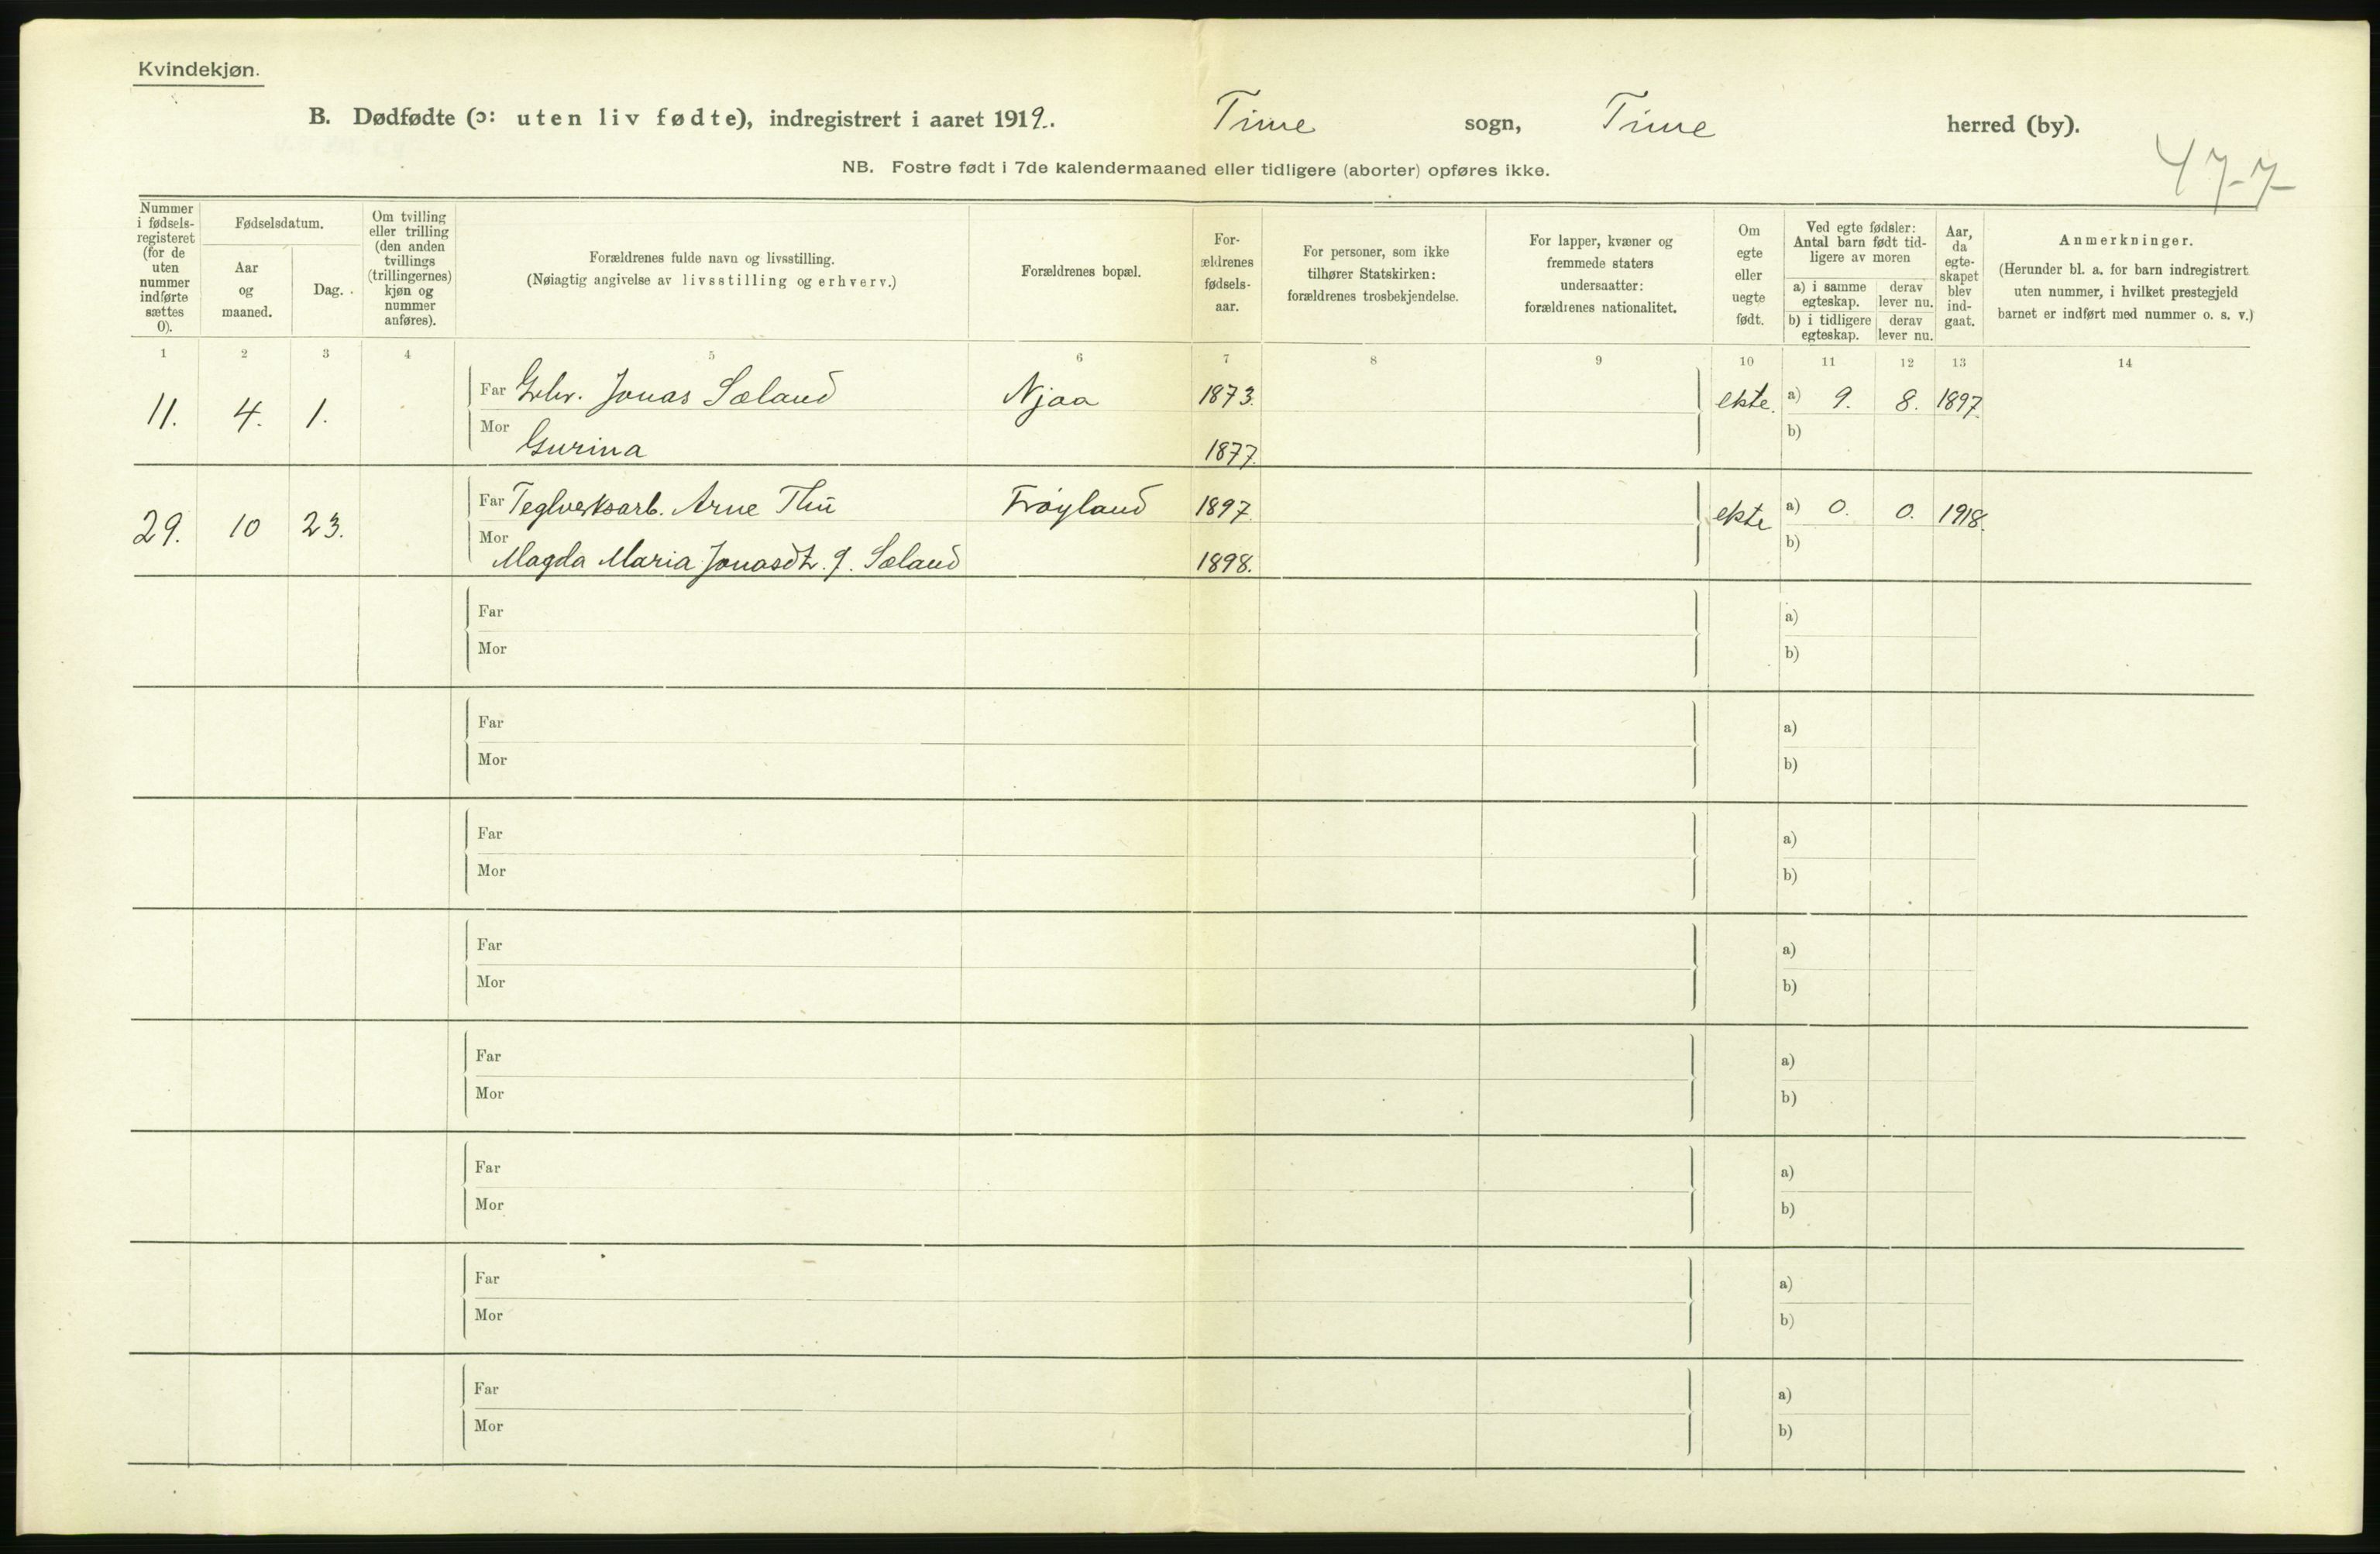 Kvindekjøn.
B. Dødfødte (ɔ: uten liv fødte), indregistrert i aaret 1919. Time sogn, Time herred (by).
NB. Fostre født i 7de kalendermaaned eller tidligere (aborter) opføres ikke.
477
Nummer i fødsels-registeret (for de uten nummer indførte sættes 0).
Fødselsdatum.
Aar og maaned.
Dag.
Om tvilling eller trilling (den anden tvillings (trillingernes) kjøn og nummer anføres).
Forældrenes fulde navn og livsstilling.
(Nøiagtig angivelse av livsstilling og erhverv.)
Forældrenes bopæl.
For-ældrenes fødsels-aar.
For personer, som ikke tilhører Statskirken: forældrenes trosbekjendelse.
For lapper, kvæner og fremmede staters undersaatter: forældrenes nationalitet.
Om egte eller uegte født.
Ved egte fødsler: Antal barn født tid-ligere av moren
a) i samme egteskap. derav lever nu.
b) i tidligere egteskap. derav lever nu.
Aar, da egte-skapet blev ind-gaat.
Anmerkninger.
(Herunder bl. a. for barn indregistrert uten nummer, i hvilket prestegjeld barnet er indført med nummer o. s. v.)
1 2 3 4 5 6 7 8 9 10 11 12 13 14
11. 4. 1. Far Jonas Sæland Njaa 1873. ekte. a) 9. 8. 1897.
Mor Gurina 1877. b)
29. 10 23. Far Teglverksarb. Arne Thu Frøyland 1897. ekte a) 0. 0. 1918.
Mor Magda Maria Jonasdtr. f. Sæland 1898. b)
Far a)
Mor b)
Far a)
Mor b)
Far a)
Mor b)
Far a)
Mor b)
Far a)
Mor b)
Far a)
Mor b)
Far a)
Mor b)
Far a)
Mor b)